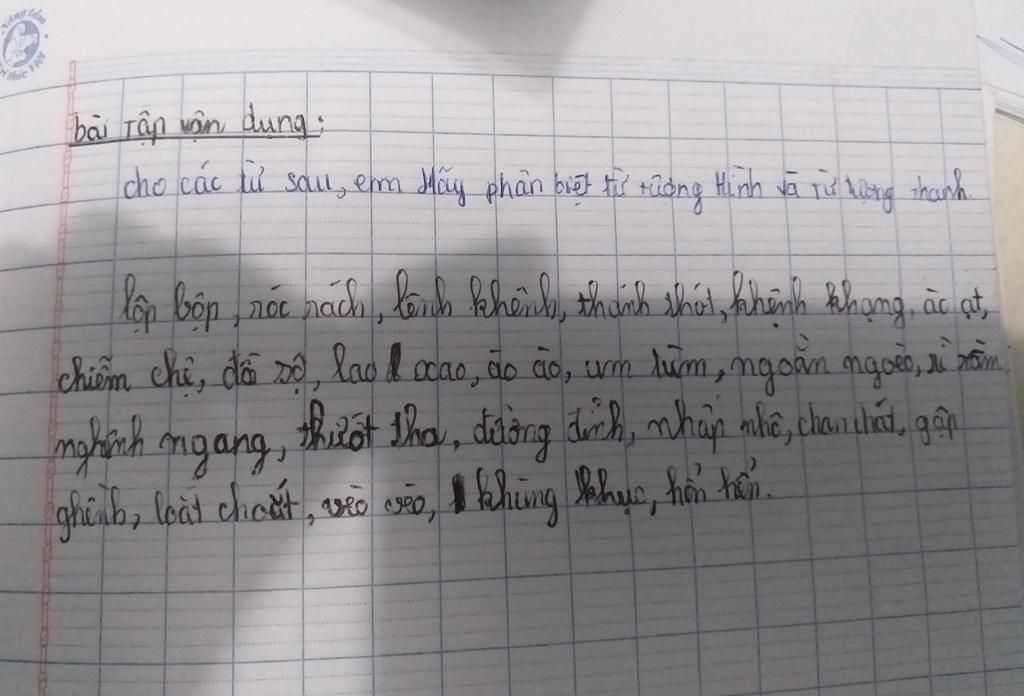 Nâng tầm
tri thức Việt
bài tập vận dụng:
cho các từ sau, em Hãy phân biệt từ tượng Hình và từ tượng thanh.
lộp bộp, róc rách, lênh khênh, thánh thót, khệnh khạng, ào ạt,
chiễm chệ, đồ sộ, lao xao, ào ào, um tùm, ngoằn ngoèo, rì rầm,
nghênh ngang, thướt tha, đường đỉnh, nhấp nhô, chan chát, gập
ghềnh, loắt choắt, vèo vèo, khùng khục, hổn hển.